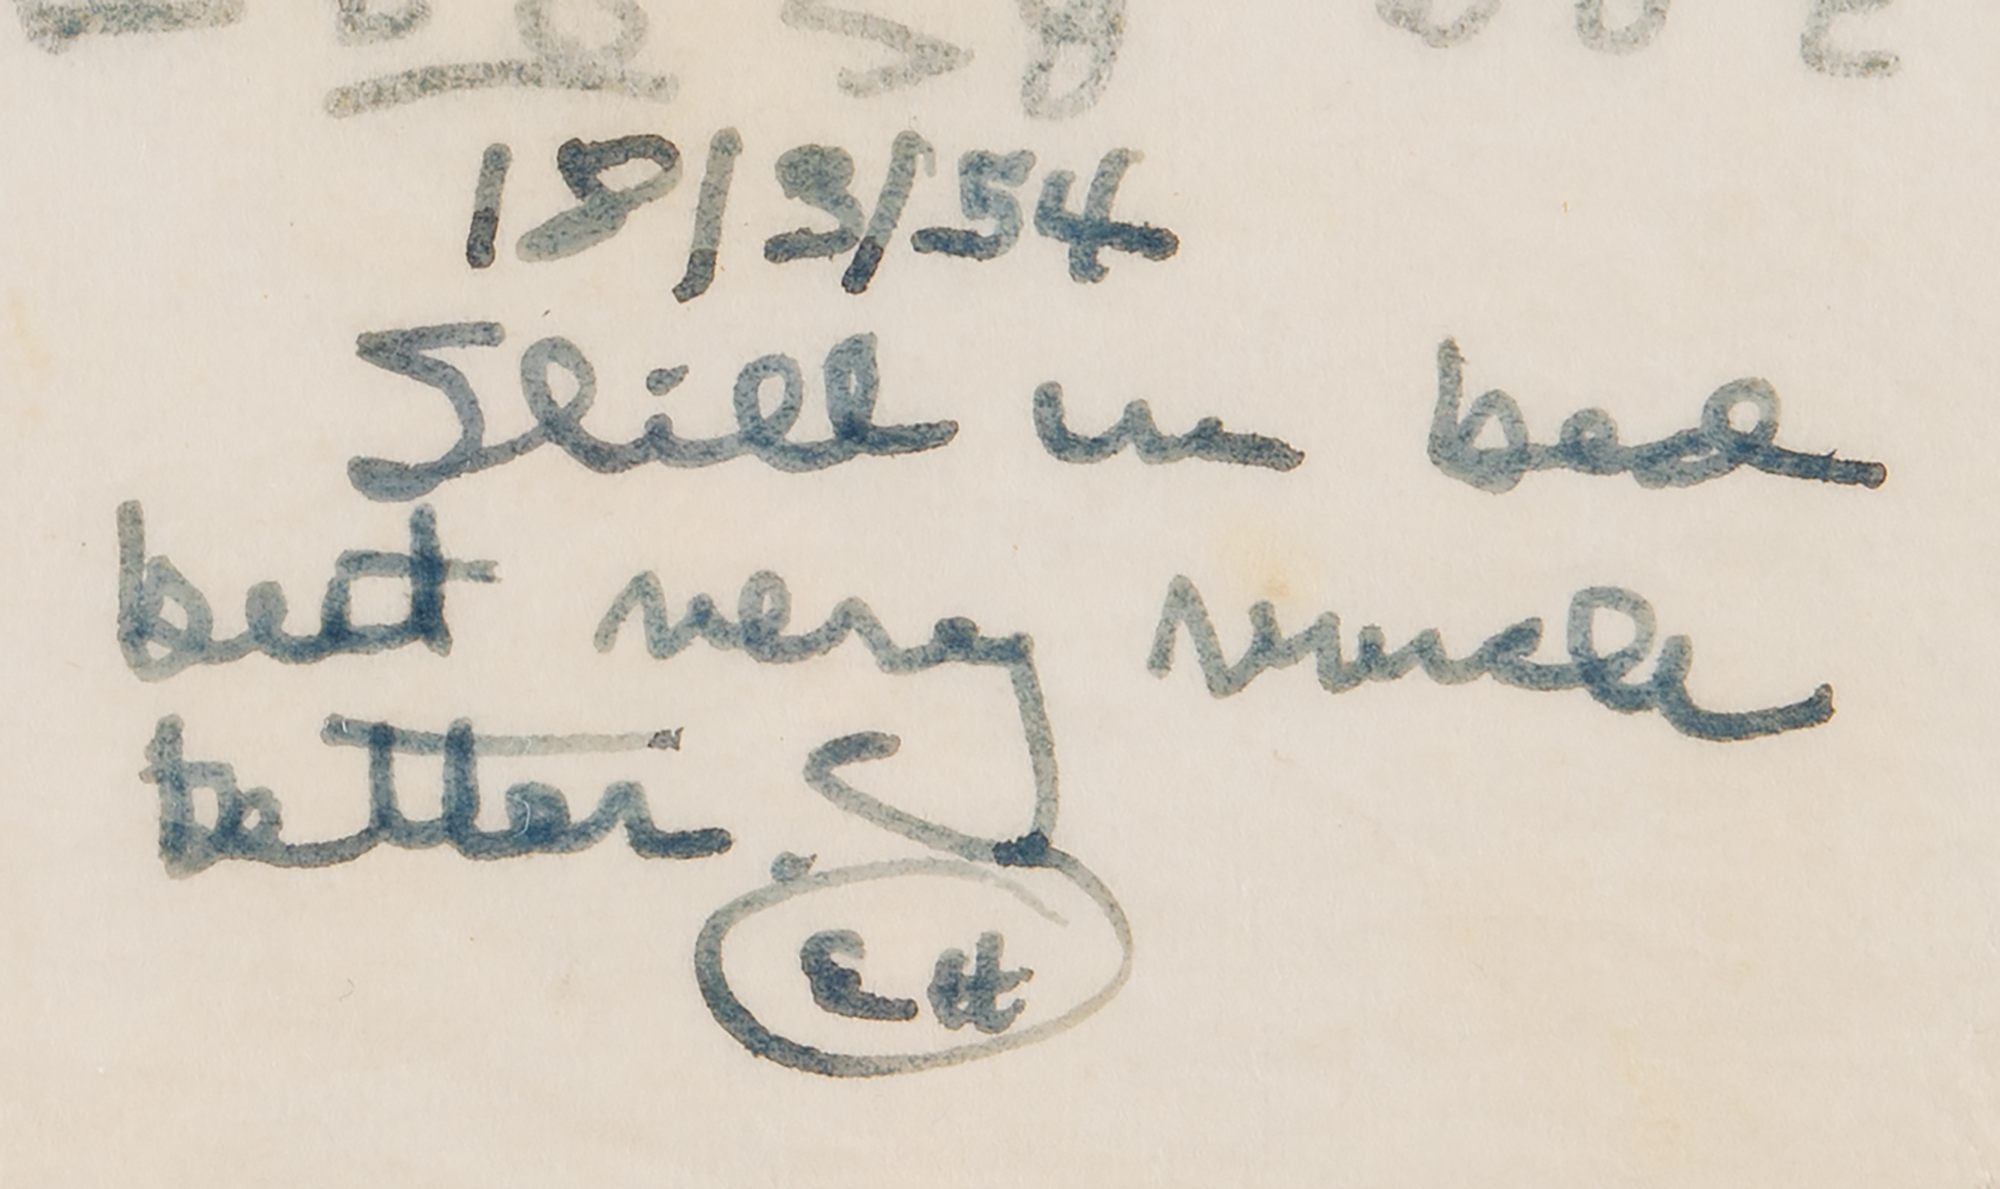 18/3/54
Still in bed
but very much
better.